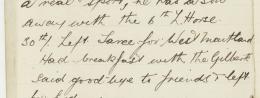 a real sport, he has
away with the 6th L Horse
30th Left Taree for West Maitland
Had breakfast with the Gilberts
said goodbye to friends & left